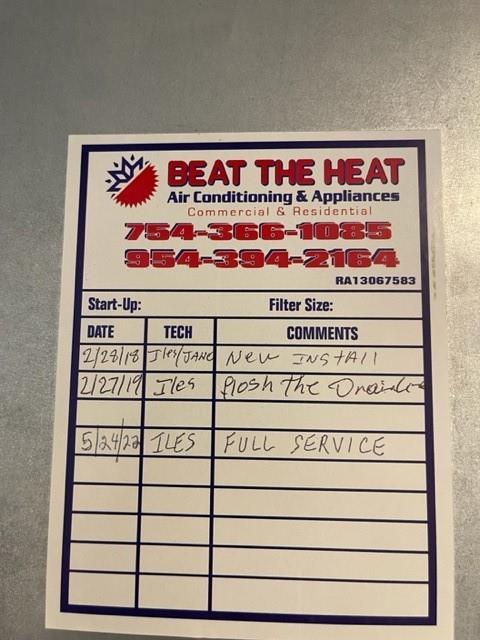 BEAT THE HEAT
Air Conditioning & Appliances
Commercial & Residential
754-366-1085
954-394-2164
RA13067583
Start-Up: Filter Size:
DATE TECH COMMENTS
2/28/18 Iles/JANE New INSTAll
2/27/19 Iles flosh the
5/24/22 ILES FULL SERVICE